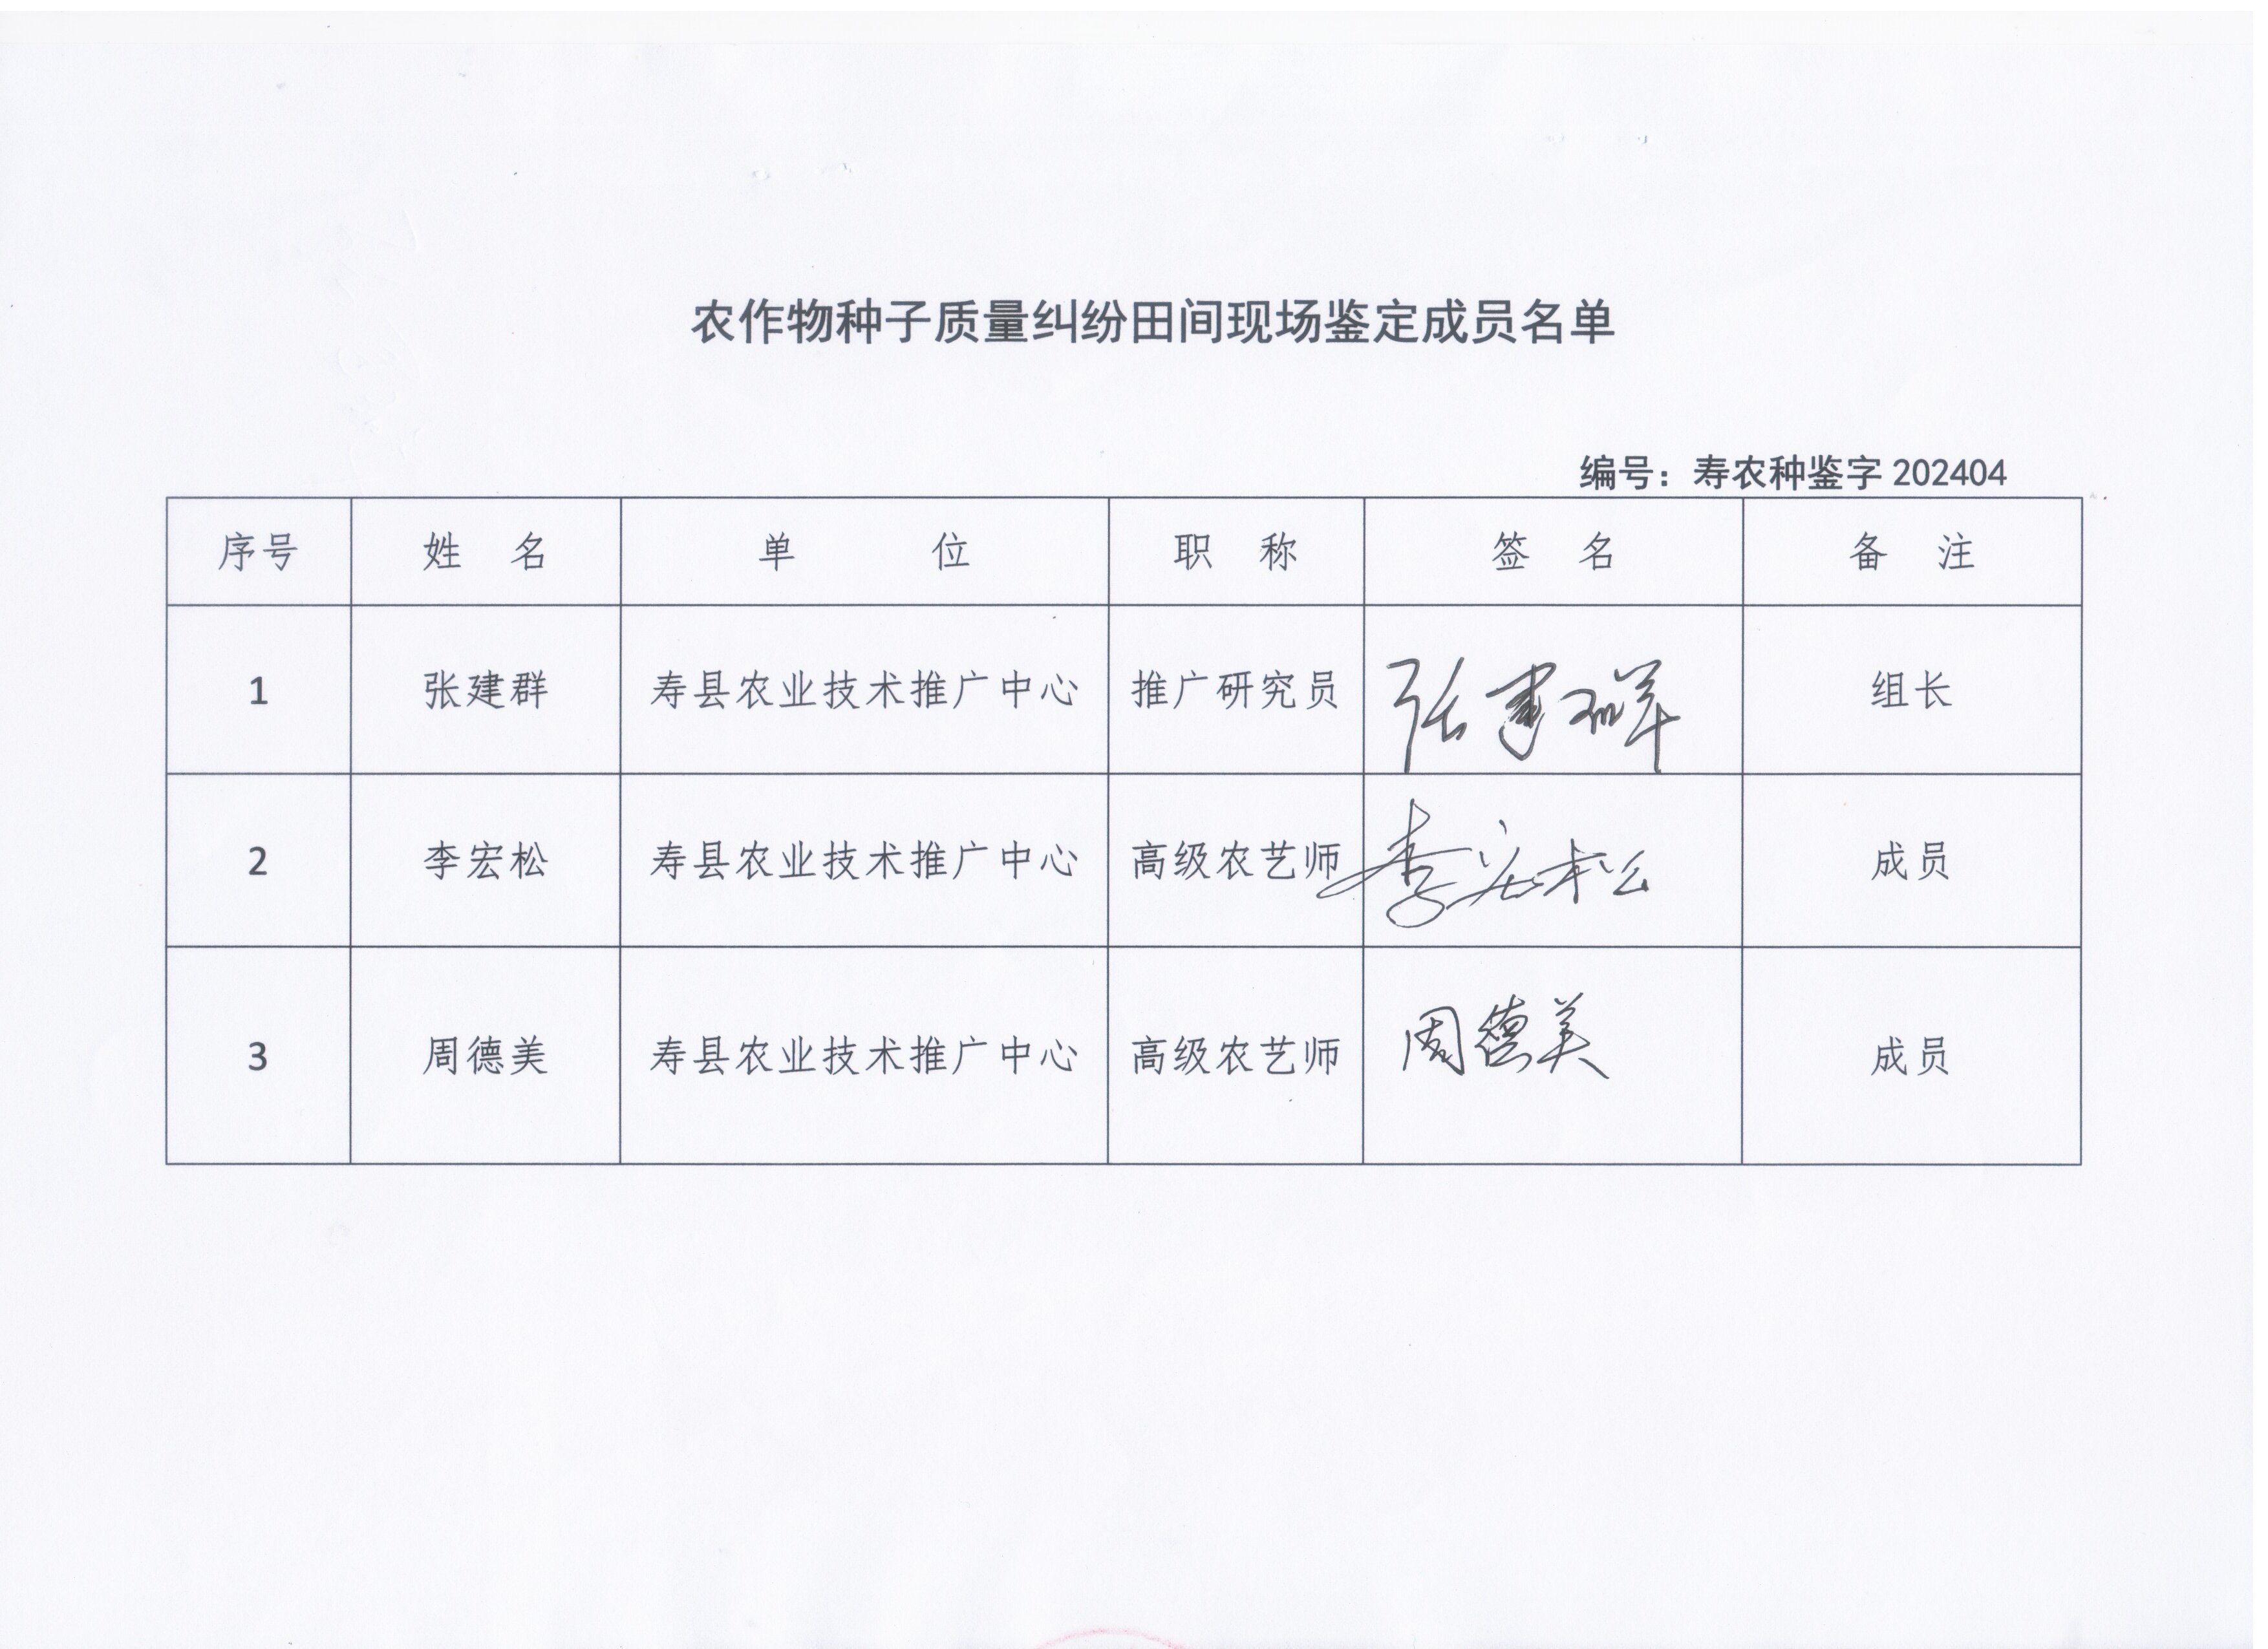 农作物种子质量纠纷田间现场鉴定成员名单
编号：寿农种鉴字 202404
序号 姓 名 单 位 职 称 签 名 备 注
1 张建群 寿县农业技术推广中心 推广研究员 张建群 组长
2 李宏松 寿县农业技术推广中心 高级农艺师 李宏松 成员
3 周德美 寿县农业技术推广中心 高级农艺师 周德美 成员